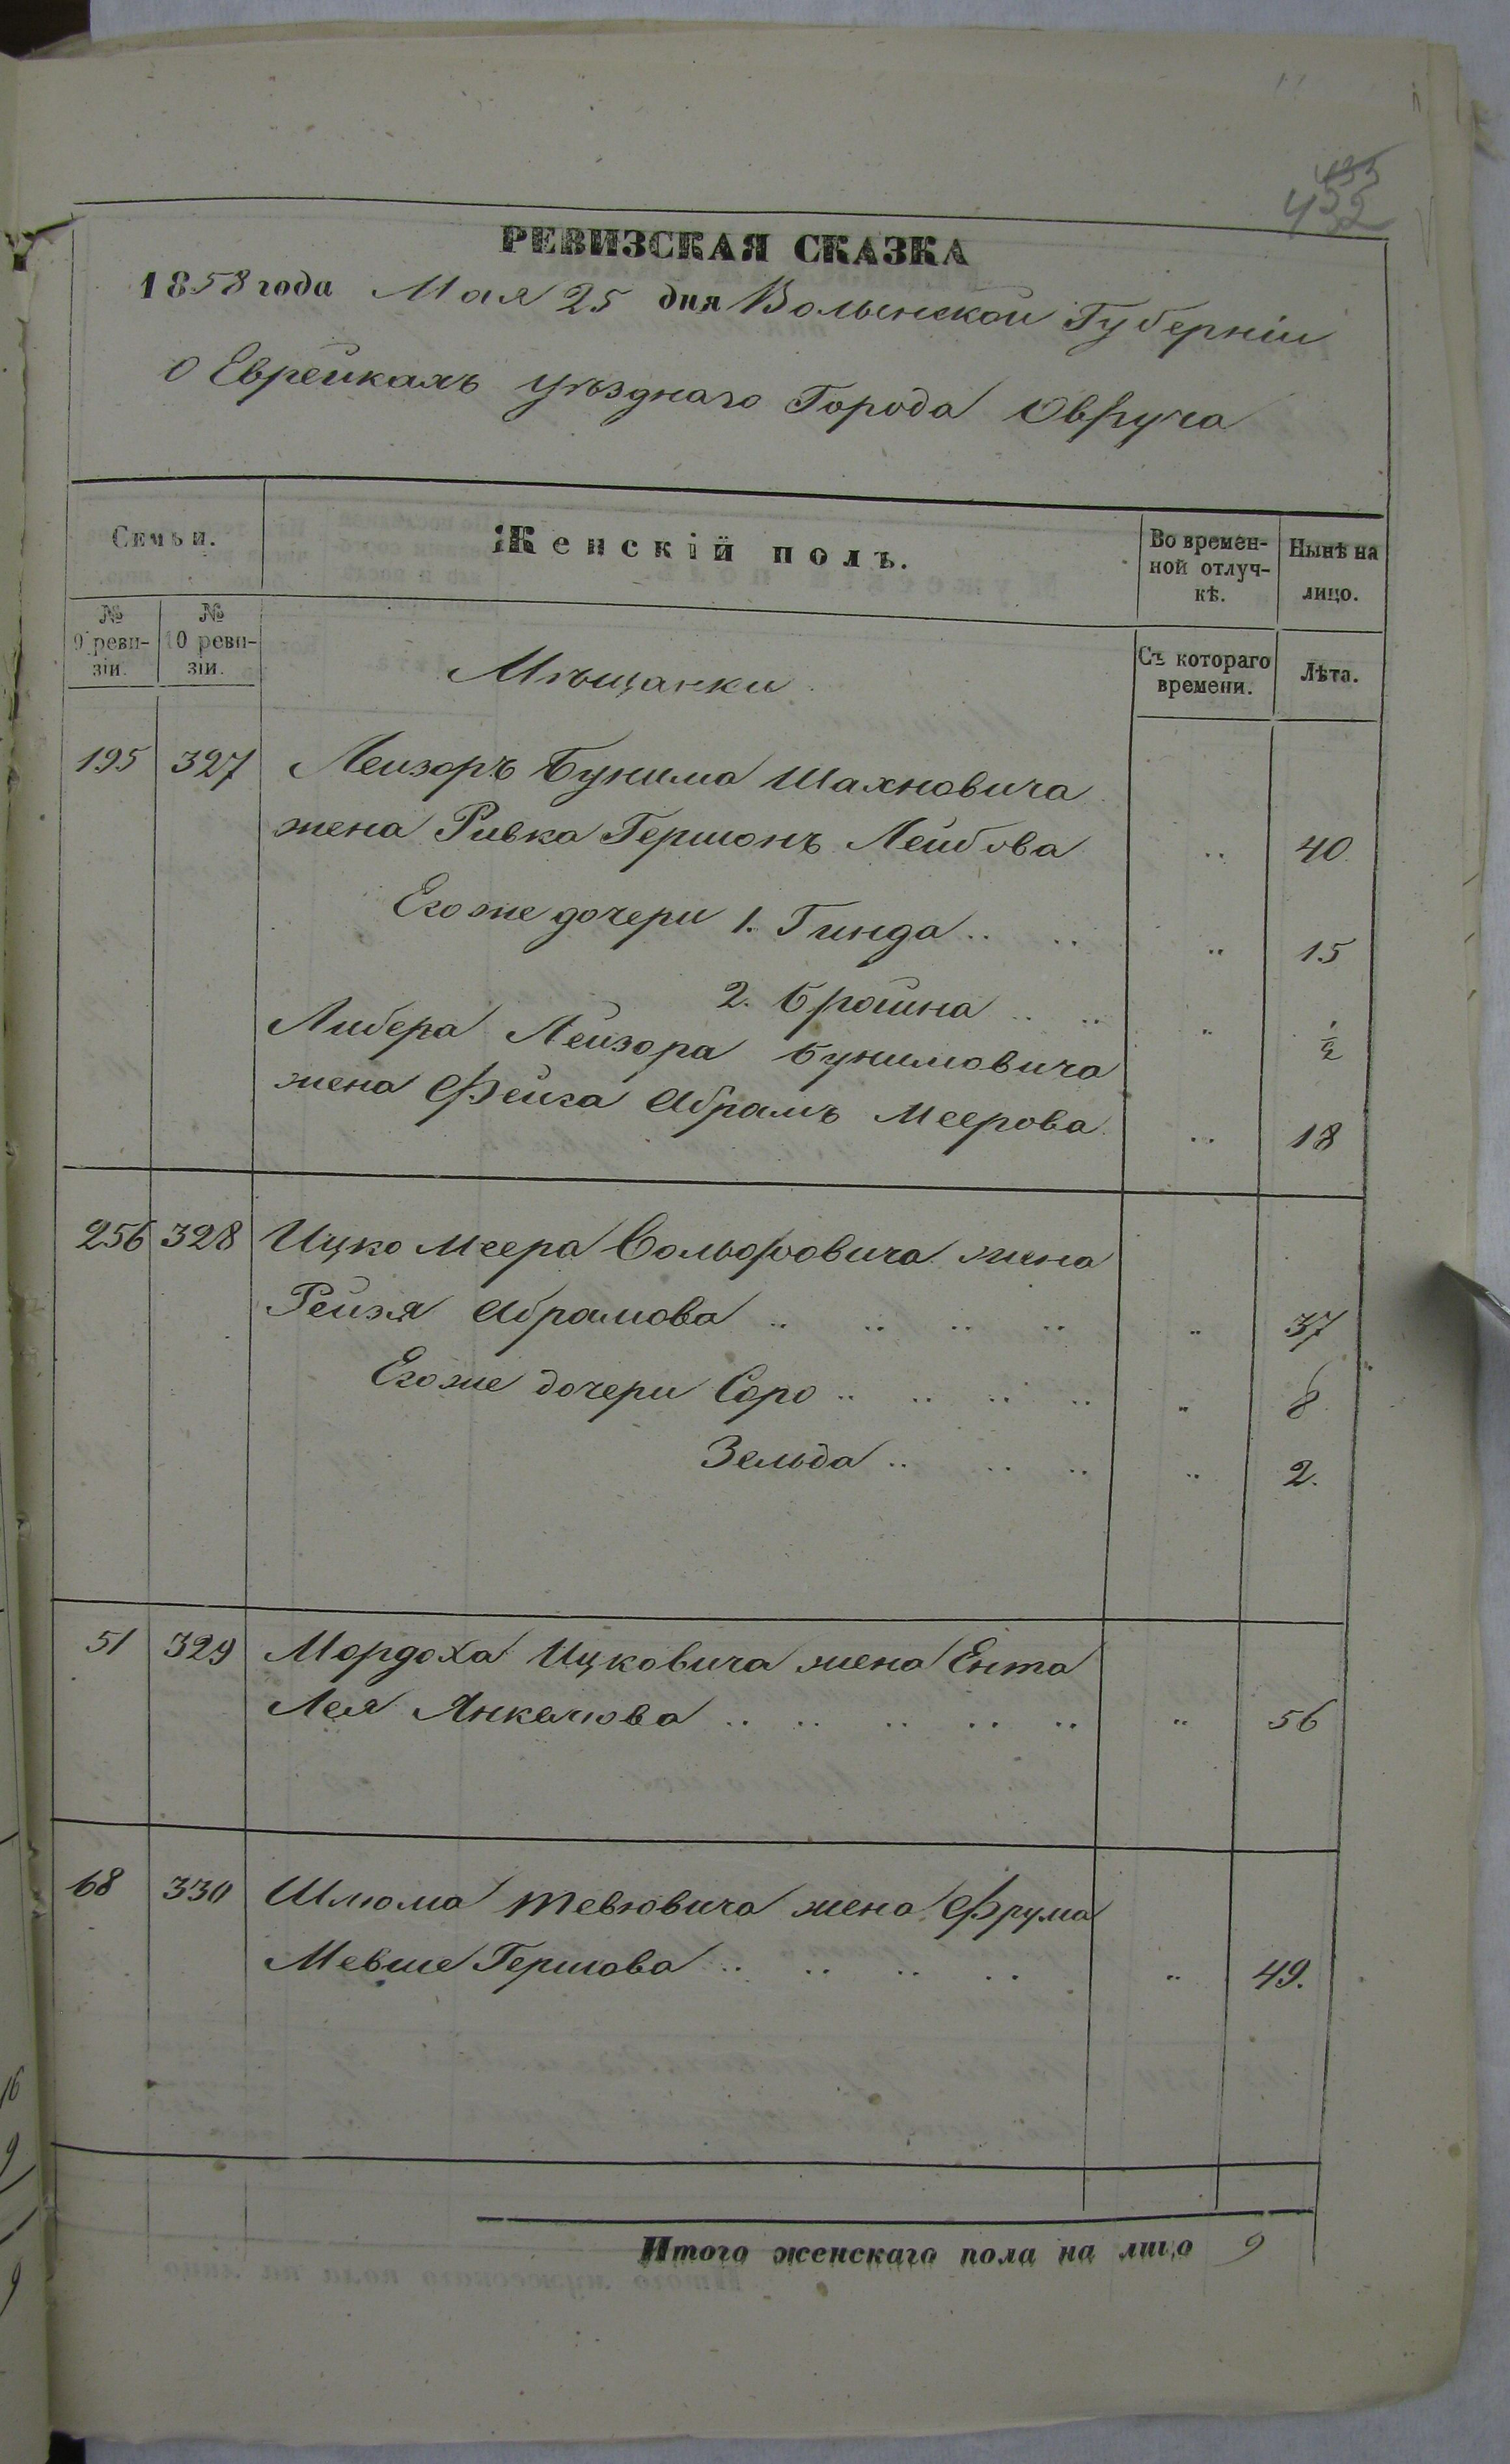 455
452
РЕВИЗСКАЯ СКАЗКА
1858 года Мая 25 дня Волынской Губерніи
о Еврейкахъ уѣзднаго Города Овруча
Семьи.
Женскій полъ.
Во времен-
ной отлуч-
кѣ.
Нынѣ на
лицо.
№
9 реви-
зіи.
№
10 реви-
зіи.
Съ котораго
времени.
Лѣта.
Мѣщанки
195 327 Лейзоръ Бунима Шахновича
жена Ривка Гершонъ Лейбова .. 40
Егоже дочери 1. Гинда .. .. .. 15
2. Бройна .. .. .. ½
Либера Лейзора Бунимовича
жена Фейга Абрамъ Меерова .. 18
256 328 Ицко Меера Вольфовича жена
Рейзя Абрамова .. .. .. .. .. 37
Егоже дочери Соро .. .. .. .. .. 8
Зельда .. .. .. .. 2.
51 329 Мордоха Ицковича жена Ента
Лея Янкелюва .. .. .. .. .. .. 56
68 330 Шлюма Тевювича жена Фрума
Мевше Гершова .. .. .. .. .. 49.
Итого женскаго пола на лицо 9